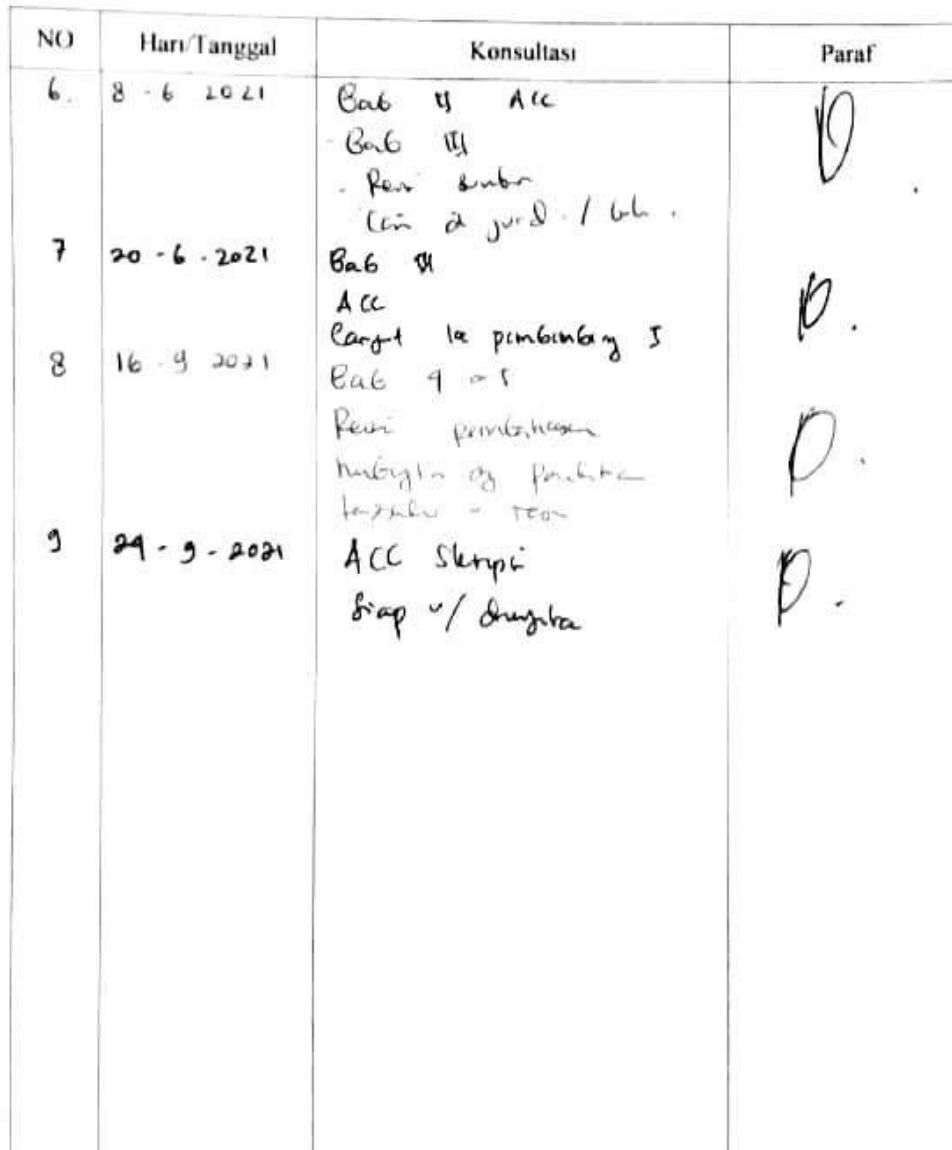 NO Hari/Tanggal Konsultasi Paraf
6. 8 - 6 2021 Bab II ACC
- Bab III
- Revisi sumber
Cari di jurnal /
7 20 - 6 - 2021 Bab III
ACC
Lanjut ke pembimbing I
8 16 - 9 2021 Bab 4 - 5
Revisi pembahasan
hubungkan dg penelitian
terdahulu - teori
9 24 - 9 - 2021 ACC Skripsi
Siap u/ diujikan